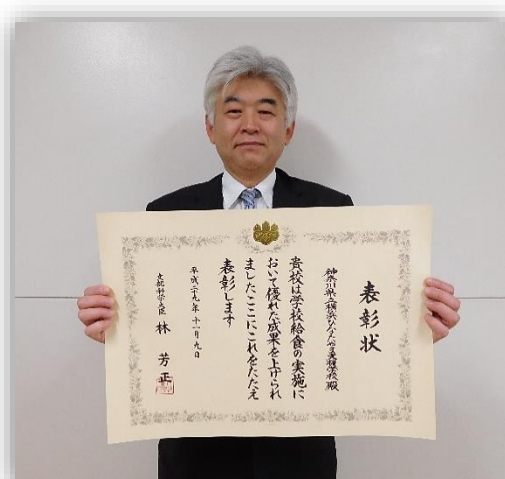 表彰状
神奈川県立横浜ひなたやま支援学校殿
貴校は学校給食の実施に
おいて優れた成果を上げられ
ましたここにこれをたたえ
表彰します
平成二十九年十一月九日
文部科学大臣 林芳正